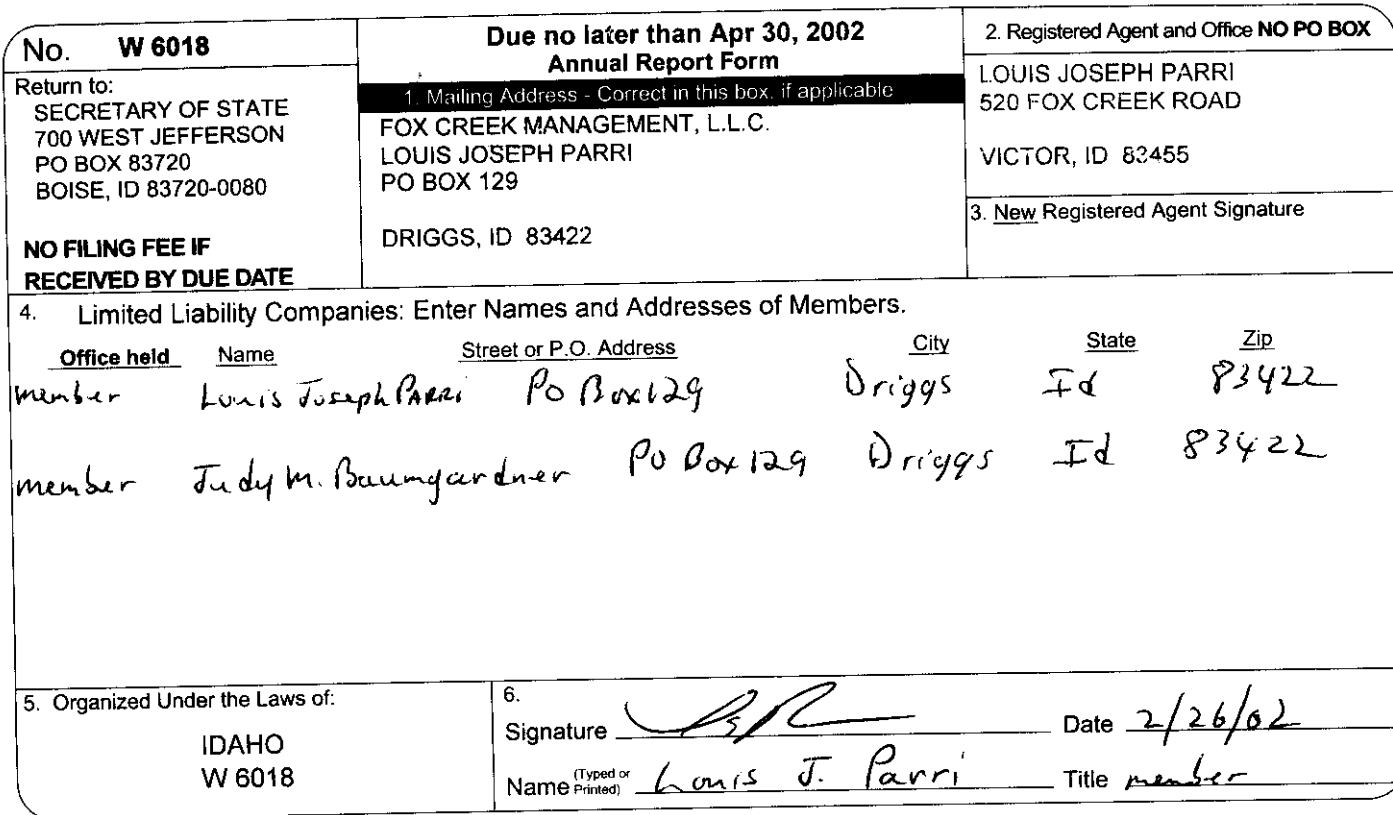 No. W 6018
Return to:
SECRETARY OF STATE
700 WEST JEFFERSON
PO BOX 83720
BOISE, ID 83720-0080
NO FILING FEE IF
RECEIVED BY DUE DATE
Due no later than Apr 30, 2002
Annual Report Form
1. Mailing Address - Correct in this box, if applicable
FOX CREEK MANAGEMENT, L.L.C.
LOUIS JOSEPH PARRI
PO BOX 129
DRIGGS, ID 83422
2. Registered Agent and Office NO PO BOX
LOUIS JOSEPH PARRI
520 FOX CREEK ROAD
VICTOR, ID 83455
3. New Registered Agent Signature
4. Limited Liability Companies: Enter Names and Addresses of Members.
Office held Name Street or P.O. Address City State Zip
member Louis Joseph PARRi PO Box 129 Driggs Id 83422
member Judy M. Baumgardner PO Box 129 Driggs Id 83422
5. Organized Under the Laws of:
IDAHO
W 6018
6.
Signature Date 2/26/02
Name (Typed or Printed) Louis J. Parri Title member